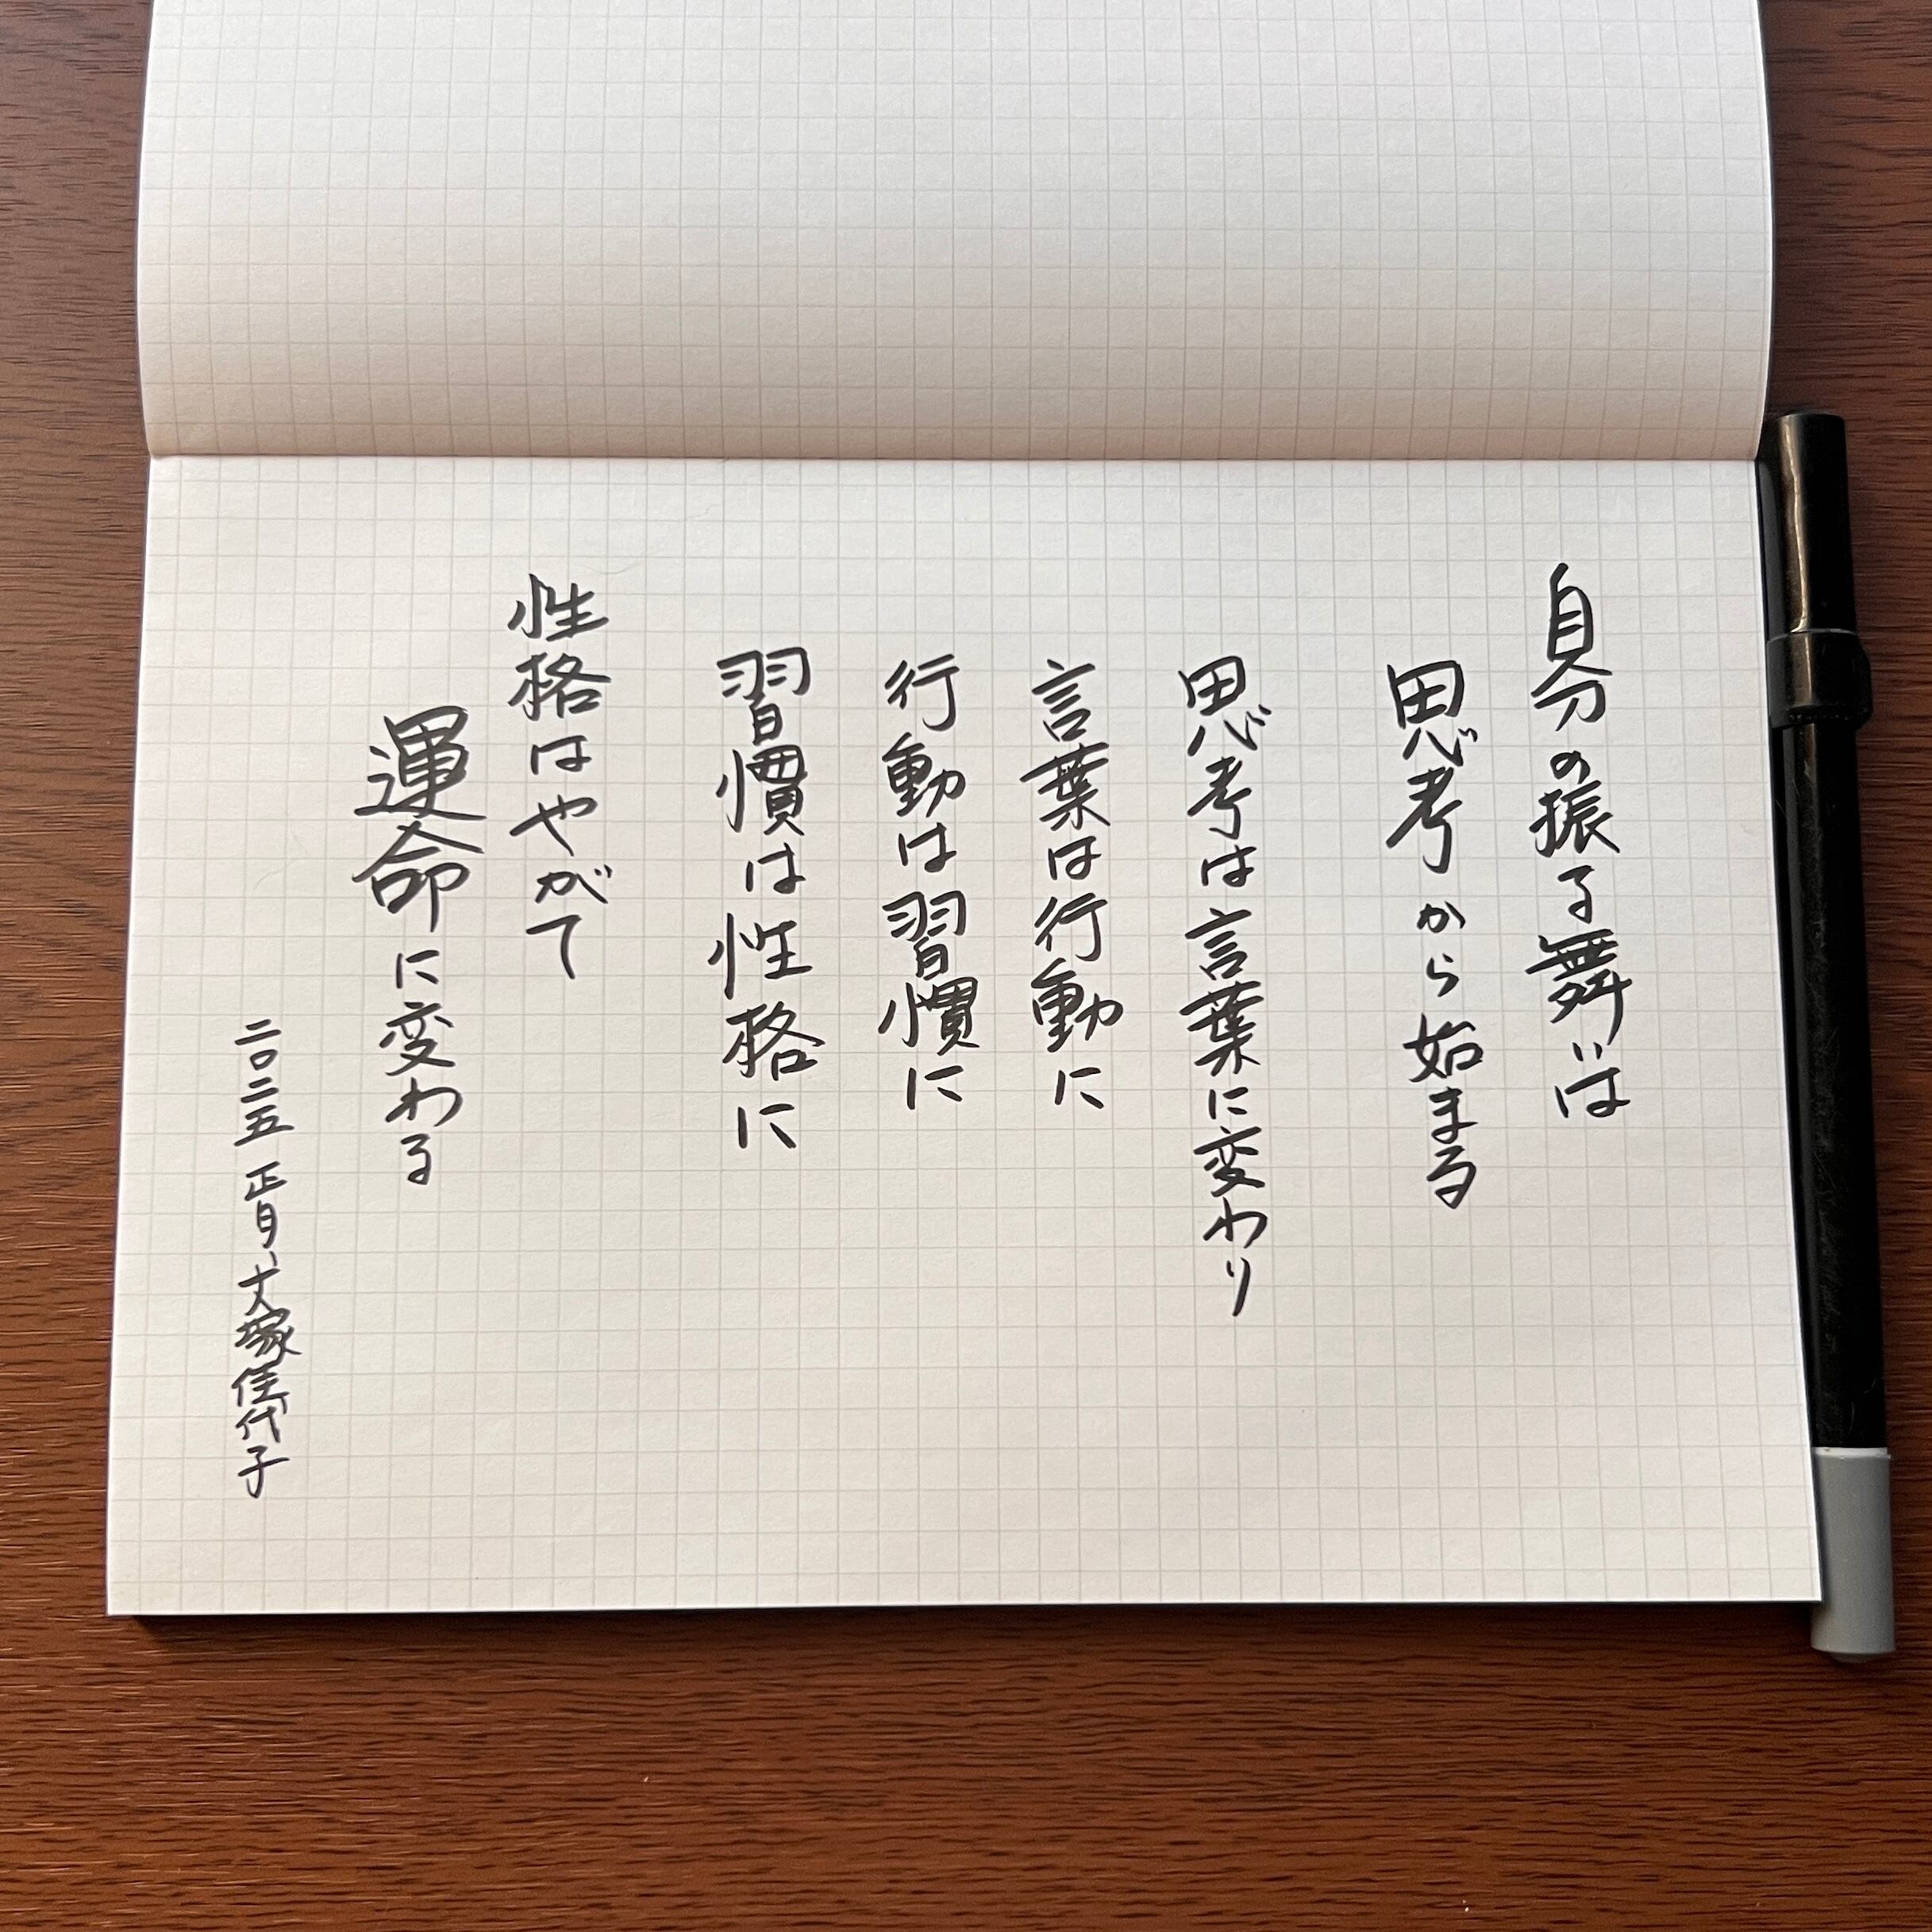 自分の振る舞いは
思考から始まる
思考は言葉に変わり
言葉は行動に
行動は習慣に
習慣は性格に
性格はやがて
運命に変わる
二〇二五 正月、大塚佳代子